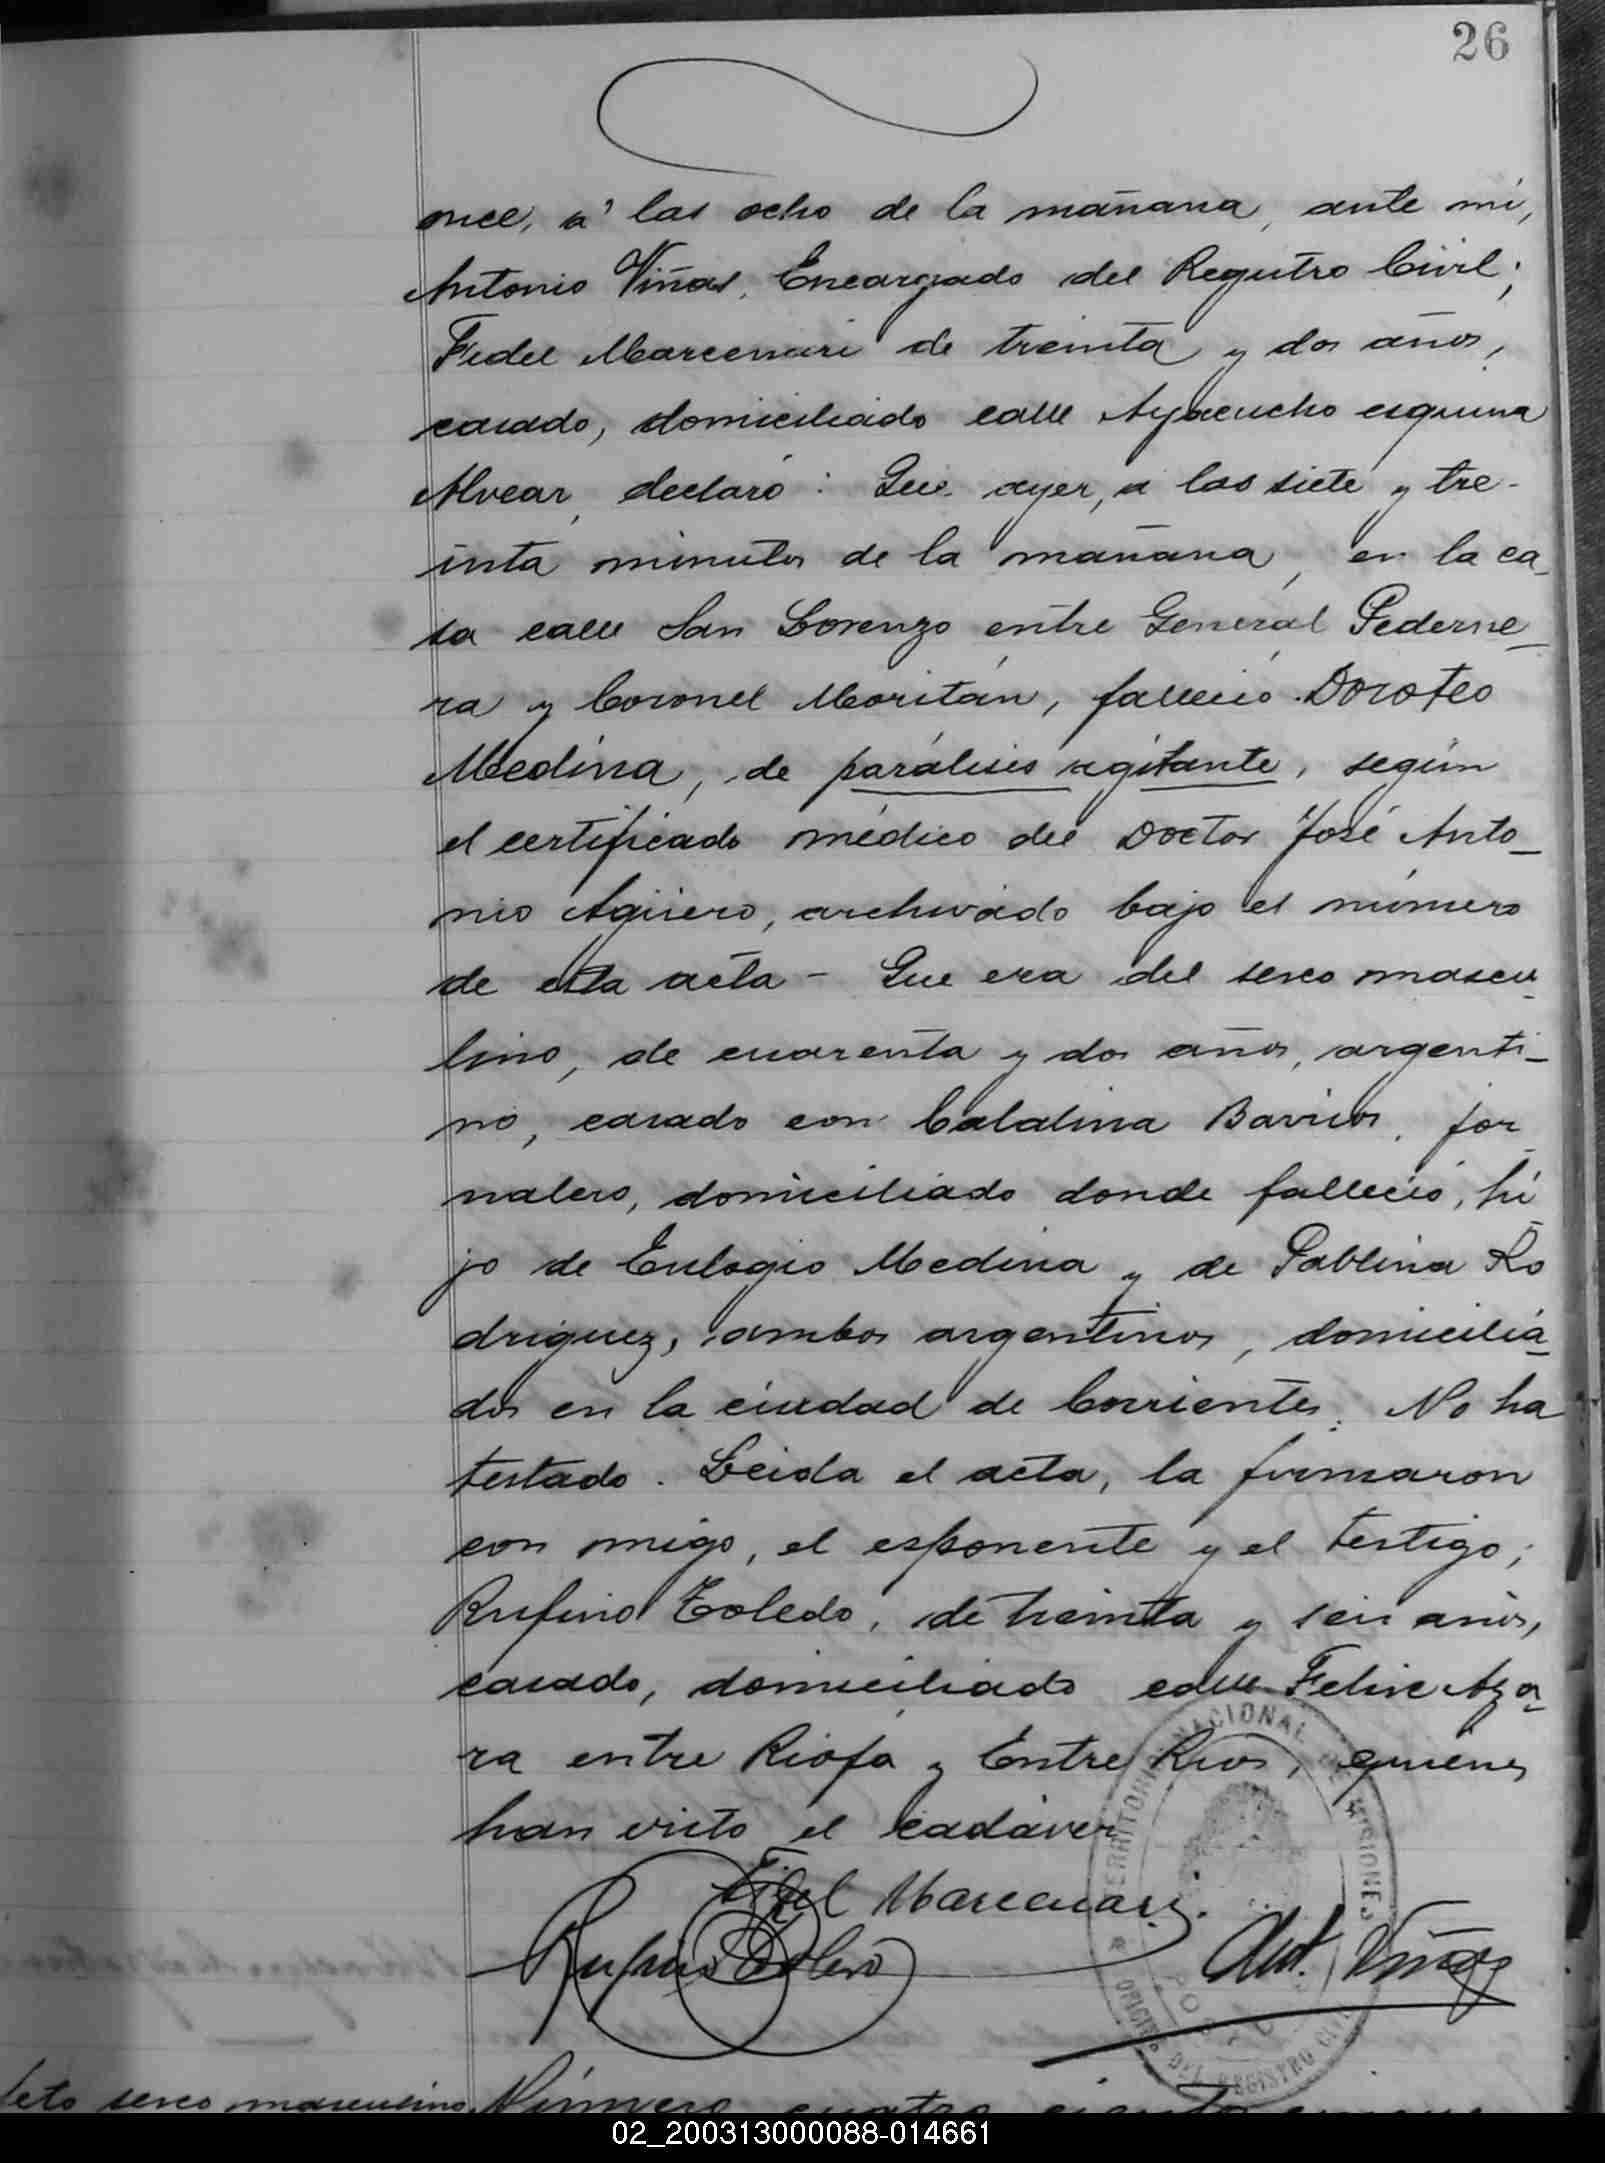 26
once, á las ocho de la mañana, ante mi,
Antonio Viñas, Encargado del Registro Civil;
Fidel Marcenari de treinta y dos años,
casado, domiciliado calle Ayacucho esquina
Alvear, declaró: Que ayer, a las siete y tre-
inta minutos de la mañana, en la ca_
sa calle San Lorenzo entre General Pederne_
ra y Coronel Moritán, falleció Doroteo
Medina, de parálisis agitante, según
el certificado médico del Doctor José Anto_
nio Agüero, archivado bajo el número
de esta acta - Que era del sexo mascu_
lino, de cuarenta y dos años, argenti_
no, casado con Catalina Barrios, jor_
nalero, domiciliado donde falleció, hi_
jo de Eulogio Medina y de Pablina Ro
driguez, ambos argentinos, domicilia_
dos en la ciudad de Corrientes. No ha
testado. Leida el acta, la firmaron
con migo, el esponente y el testigo;
Rufino Toledo, de treinta y seis años,
casado, domiciliado calle Felix Aza_
ra entre Rioja y Entre Rios, quienes
han visto el cadáver
Fidel Marcenari.
Rufino Toledo
Ant. Viñas
TERRITORIO NACIONAL DE MISIONES
OFICINA DEL REGISTRO CIVIL
sexo masculino
Número cuatro
02_200313000088-014661